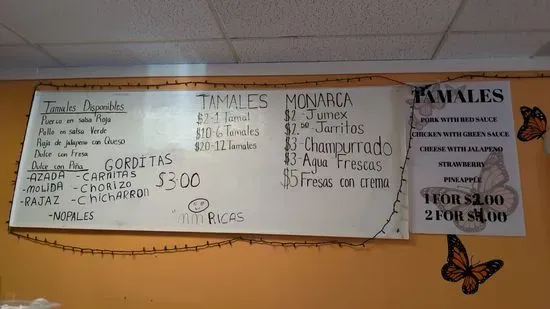 Tamales Disponibles
Puerco en salsa Roja
Pollo en salsa Verde
Raja de jalapeno con Queso
Dulce con Fresa
Dulce con Piña
GORDITAS
-AZADA -CARNITAS
-MOLIDA -Chorizo
-RAJAZ -Chicharron
-NOPALES
$3.00
TAMALES
$2-1 Tamal
$10-6 Tamales
$20-12 Tamales
mm RICAS
MONARCA
$2- Jumex
$2.00 Jarritos
$3-Champurrado
$3-Agua Frescas
$5 Fresas con crema
TAMALES
PORK WITH RED SAUCE
CHICKEN WITH GREEN SAUCE
CHEESE WITH JALAPENO
STRAWBERRY
PINEAPPLE
1 FOR $2.00
2 FOR $4.00